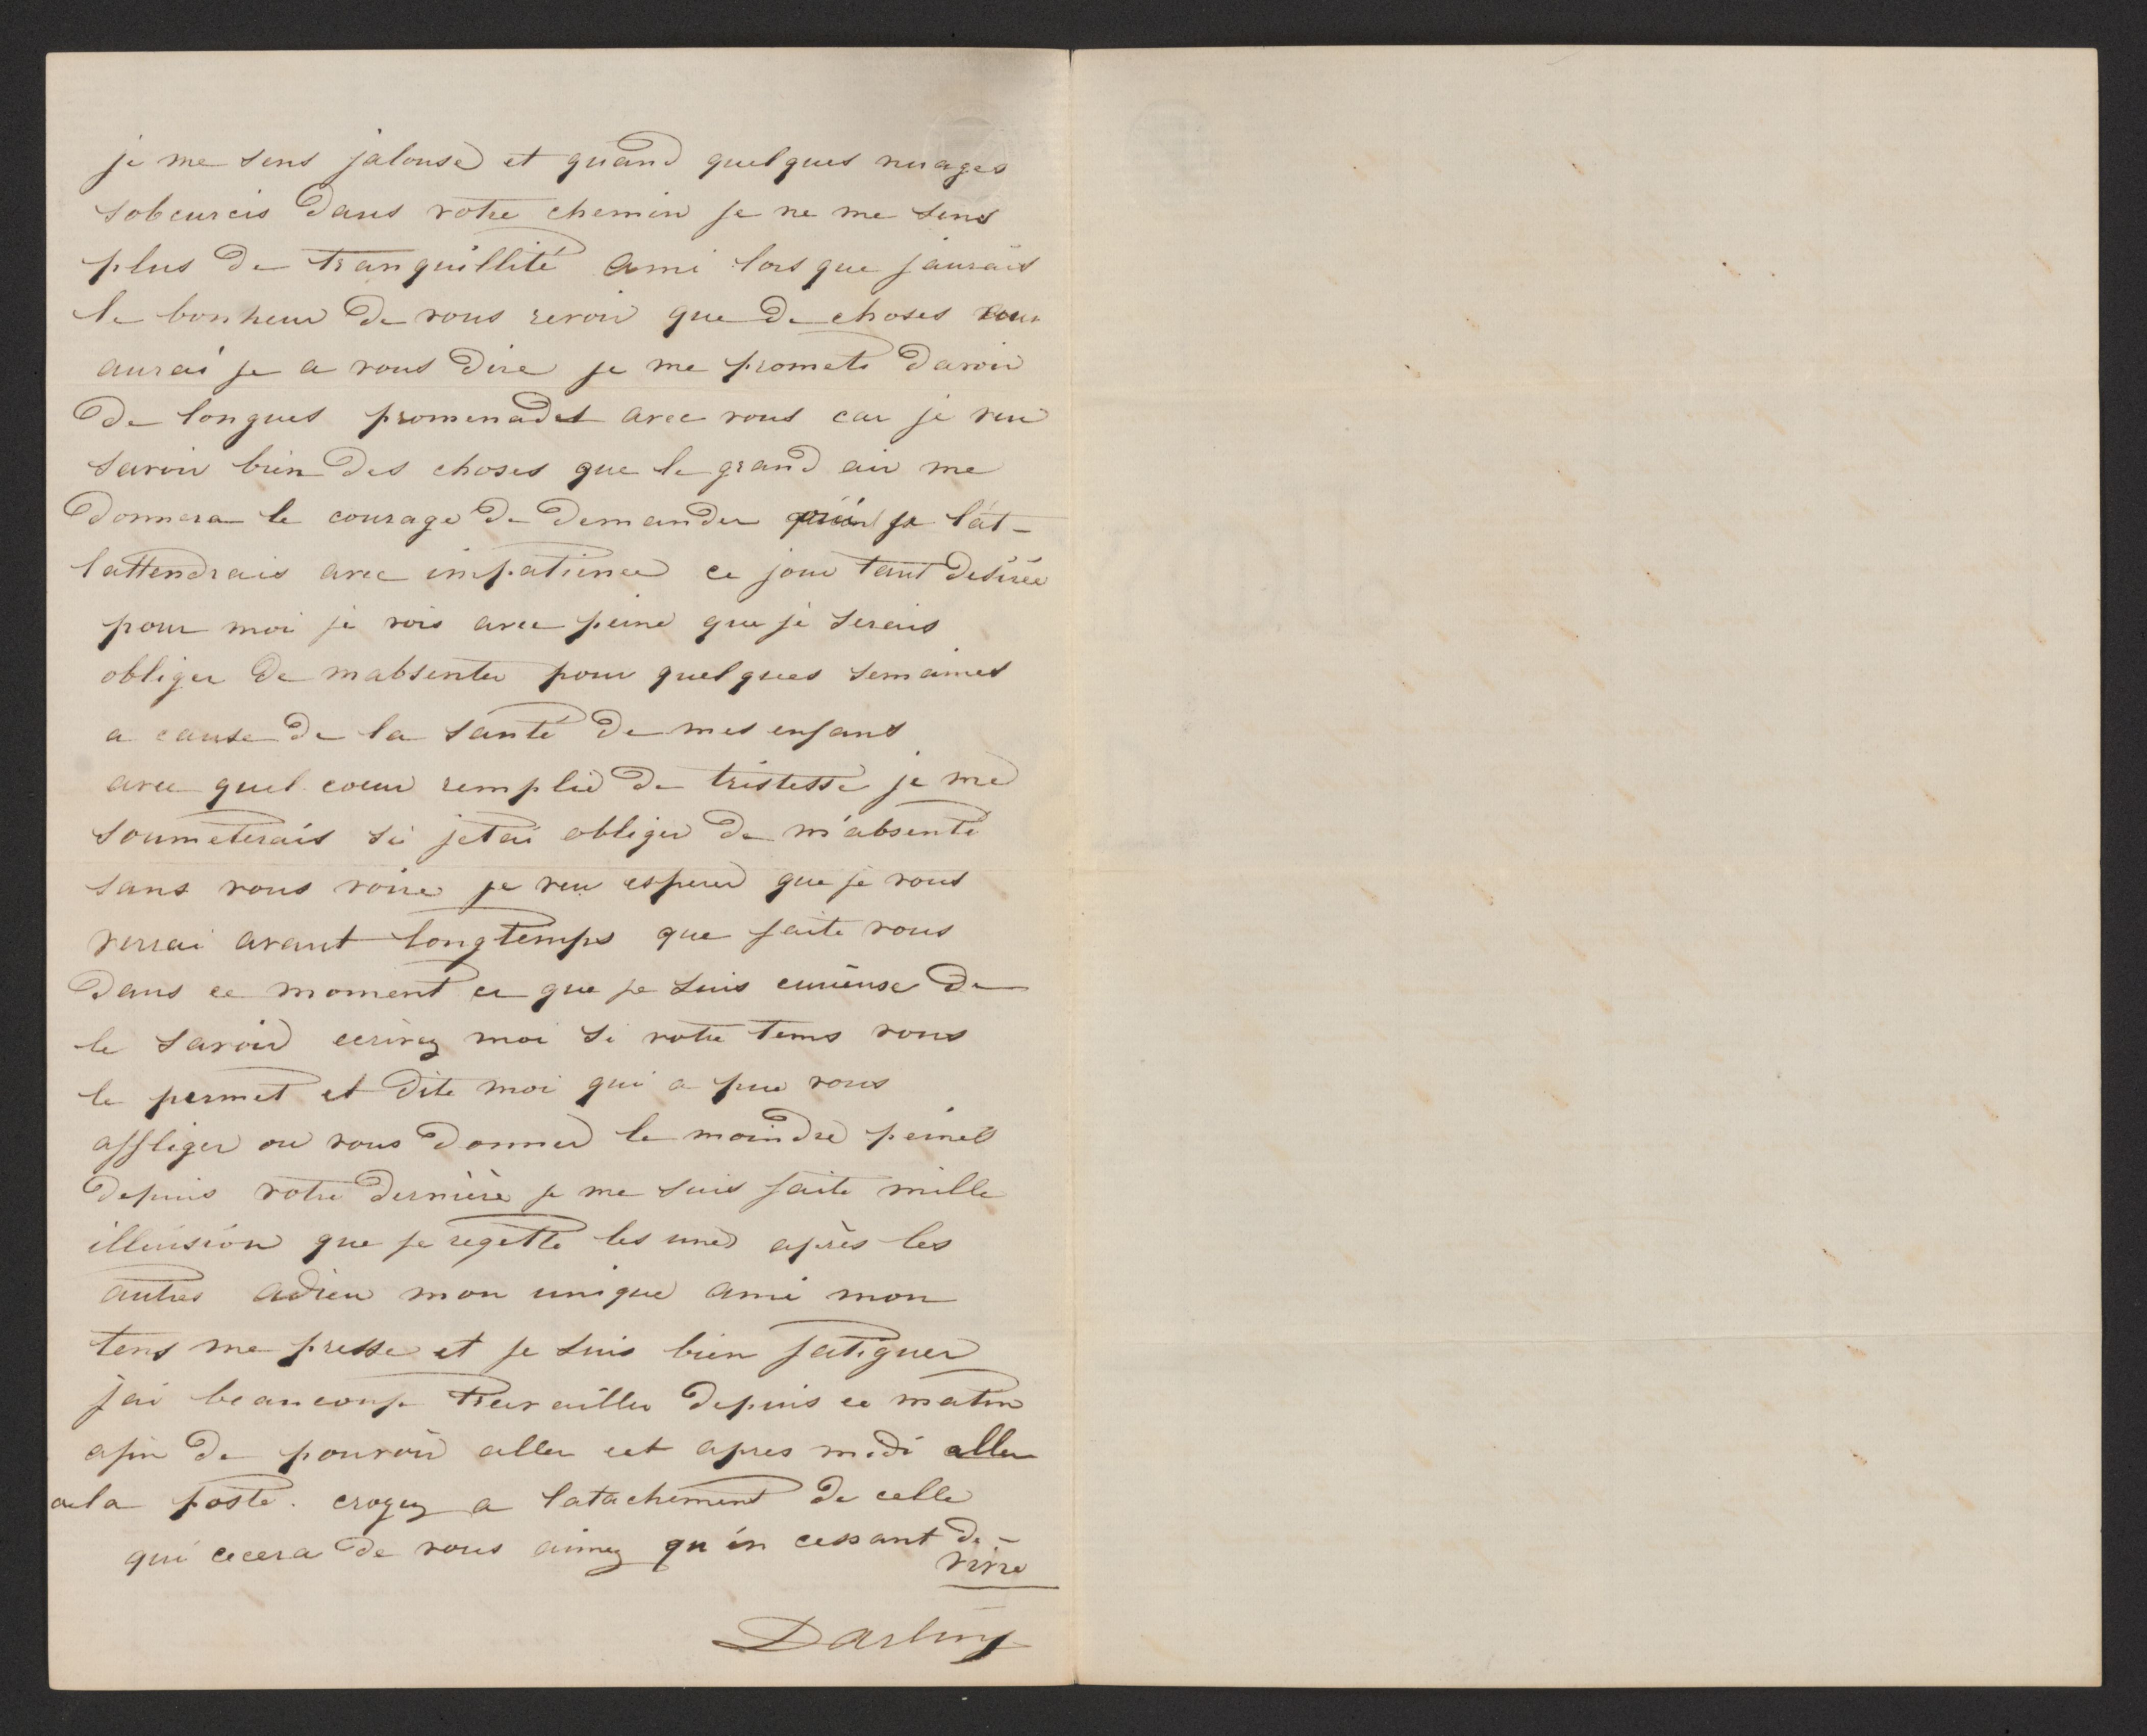 je me sens jalouse et quand quelques nuages
sobcurcis dans votre chemin je ne me sens
plus de tranquillité ami lors que jaurais
le bonheur de vous revoir que de choses
aurai je a vous dire je me promets davoir
de longues promenades avec vous car je veu
savoir bien des choses que le grand air me
donnera le courage de demander je lat-
lattendrais avec impatience ce jour tant desirée
pour moi je vois avec peine que je serais
obliger de mabsenter pour quelques semaines
a cause de la santé de mes enfans
avec quel coeur remplie de tristesse je me
soumeterais si jetai obliger de m'absente
sans vous voire je veu esperer que je vous
verrai avant longtemps que faite vous
dans ce moment ce que je suis curieuse de
le savoir ecrivez moi si votre tems vous
le permet et dite moi qui a pue vous
affliger ou vous donner le moindre peines
depuis votre dernière je me suis faite mille
illeusion que je regette les unes après les
autres adieu mon unique ami mon
tens me presse et je suis bien fatiguer
jai beaucoup travailler depuis ce matin
afin de pouvoir aller cet apres midi aller
a la poste. croyez a latachement de celle
qui cecera de vous aimez qu'en cessant de-
vivre
Darling